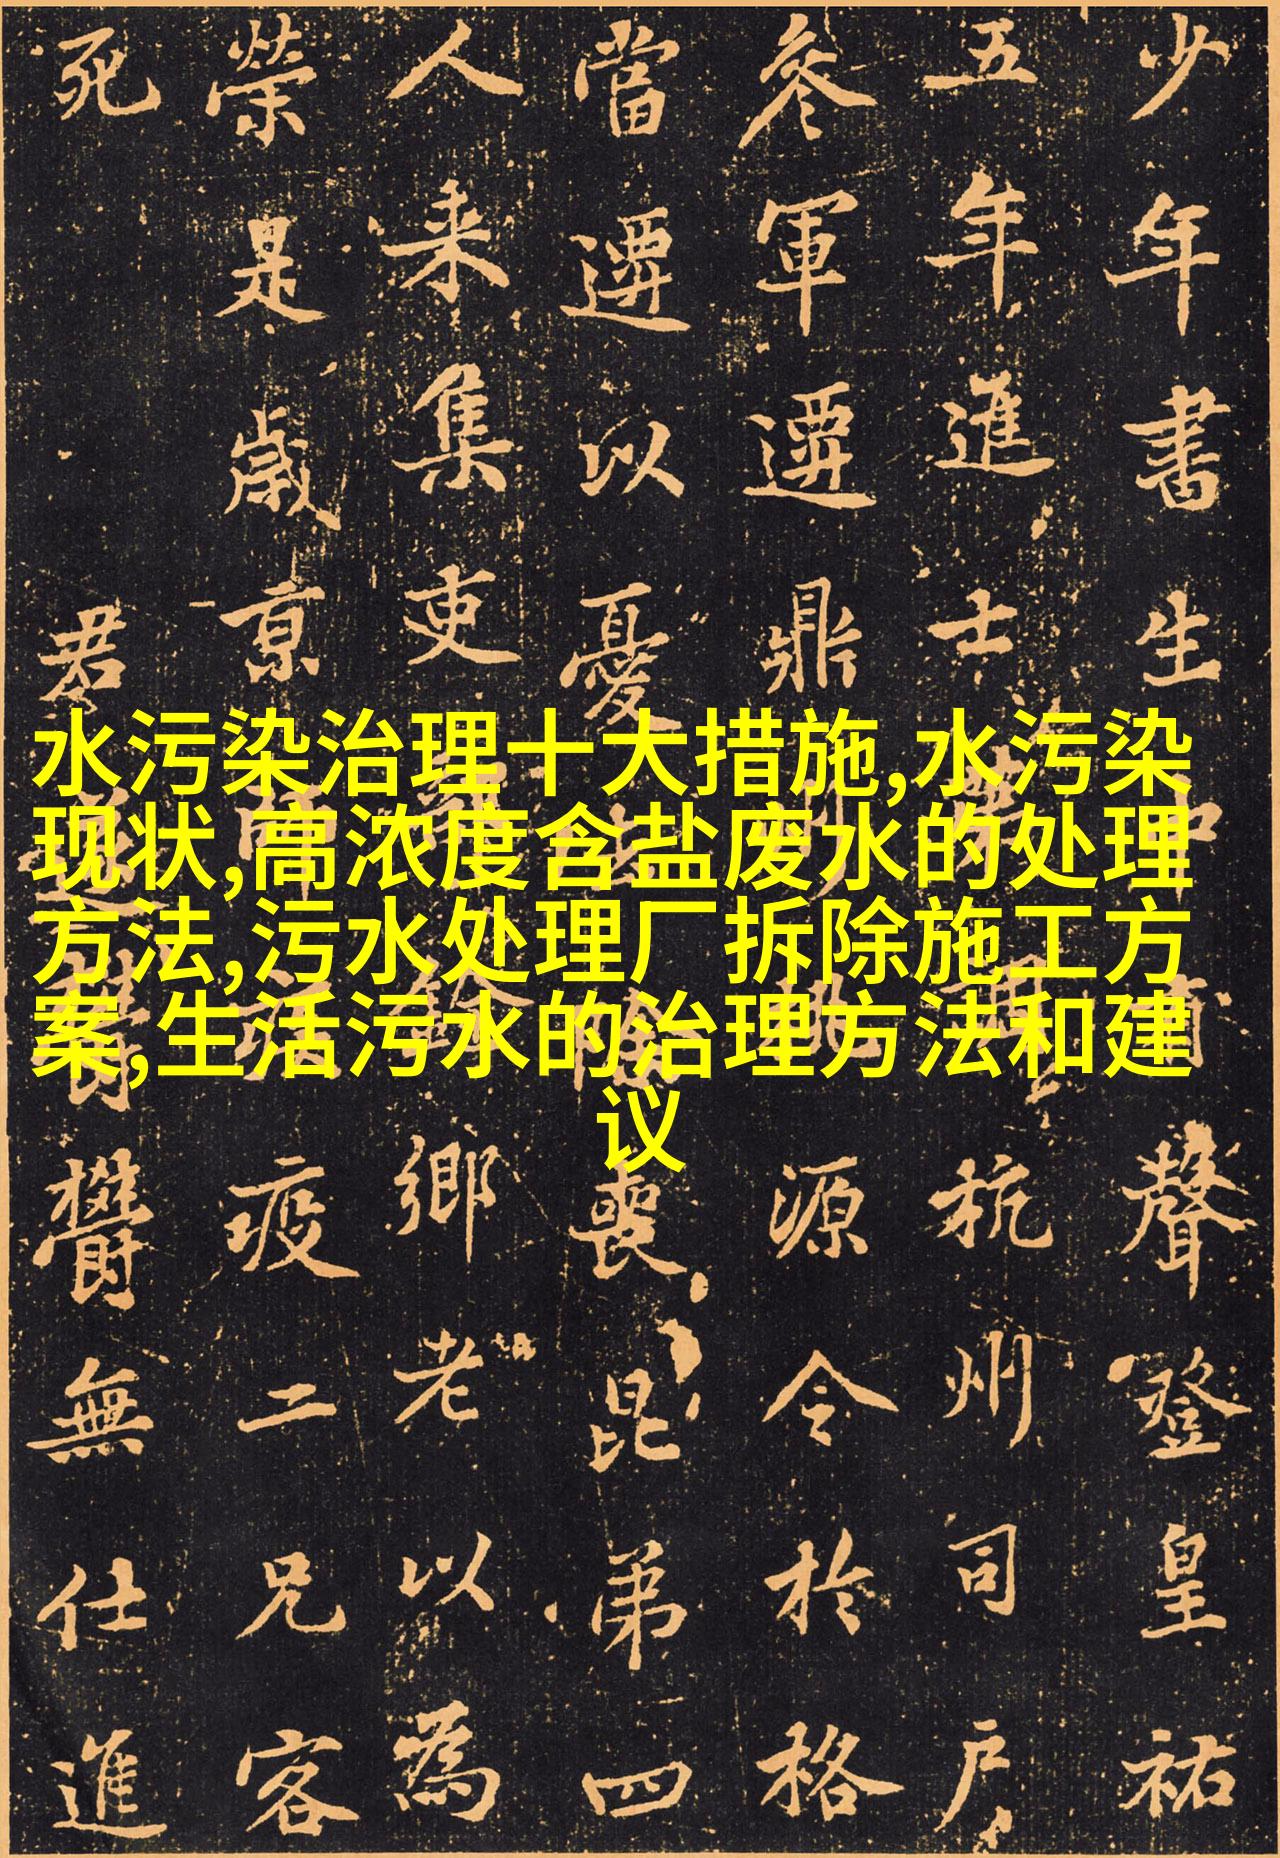 水污染治理十大措施,水污染
现状,高浓度含盐废水的处理
方法,污水处理厂拆除施工方
案,生活污水的治理方法和建
议
少年書生聲登皇祐
五年進士杭州司户
參軍遷鼎源令於格
當遷以憂喪昆弟四
人来集吏鄉老以為
榮是歲京疫二兄客
死君鬱無仕進